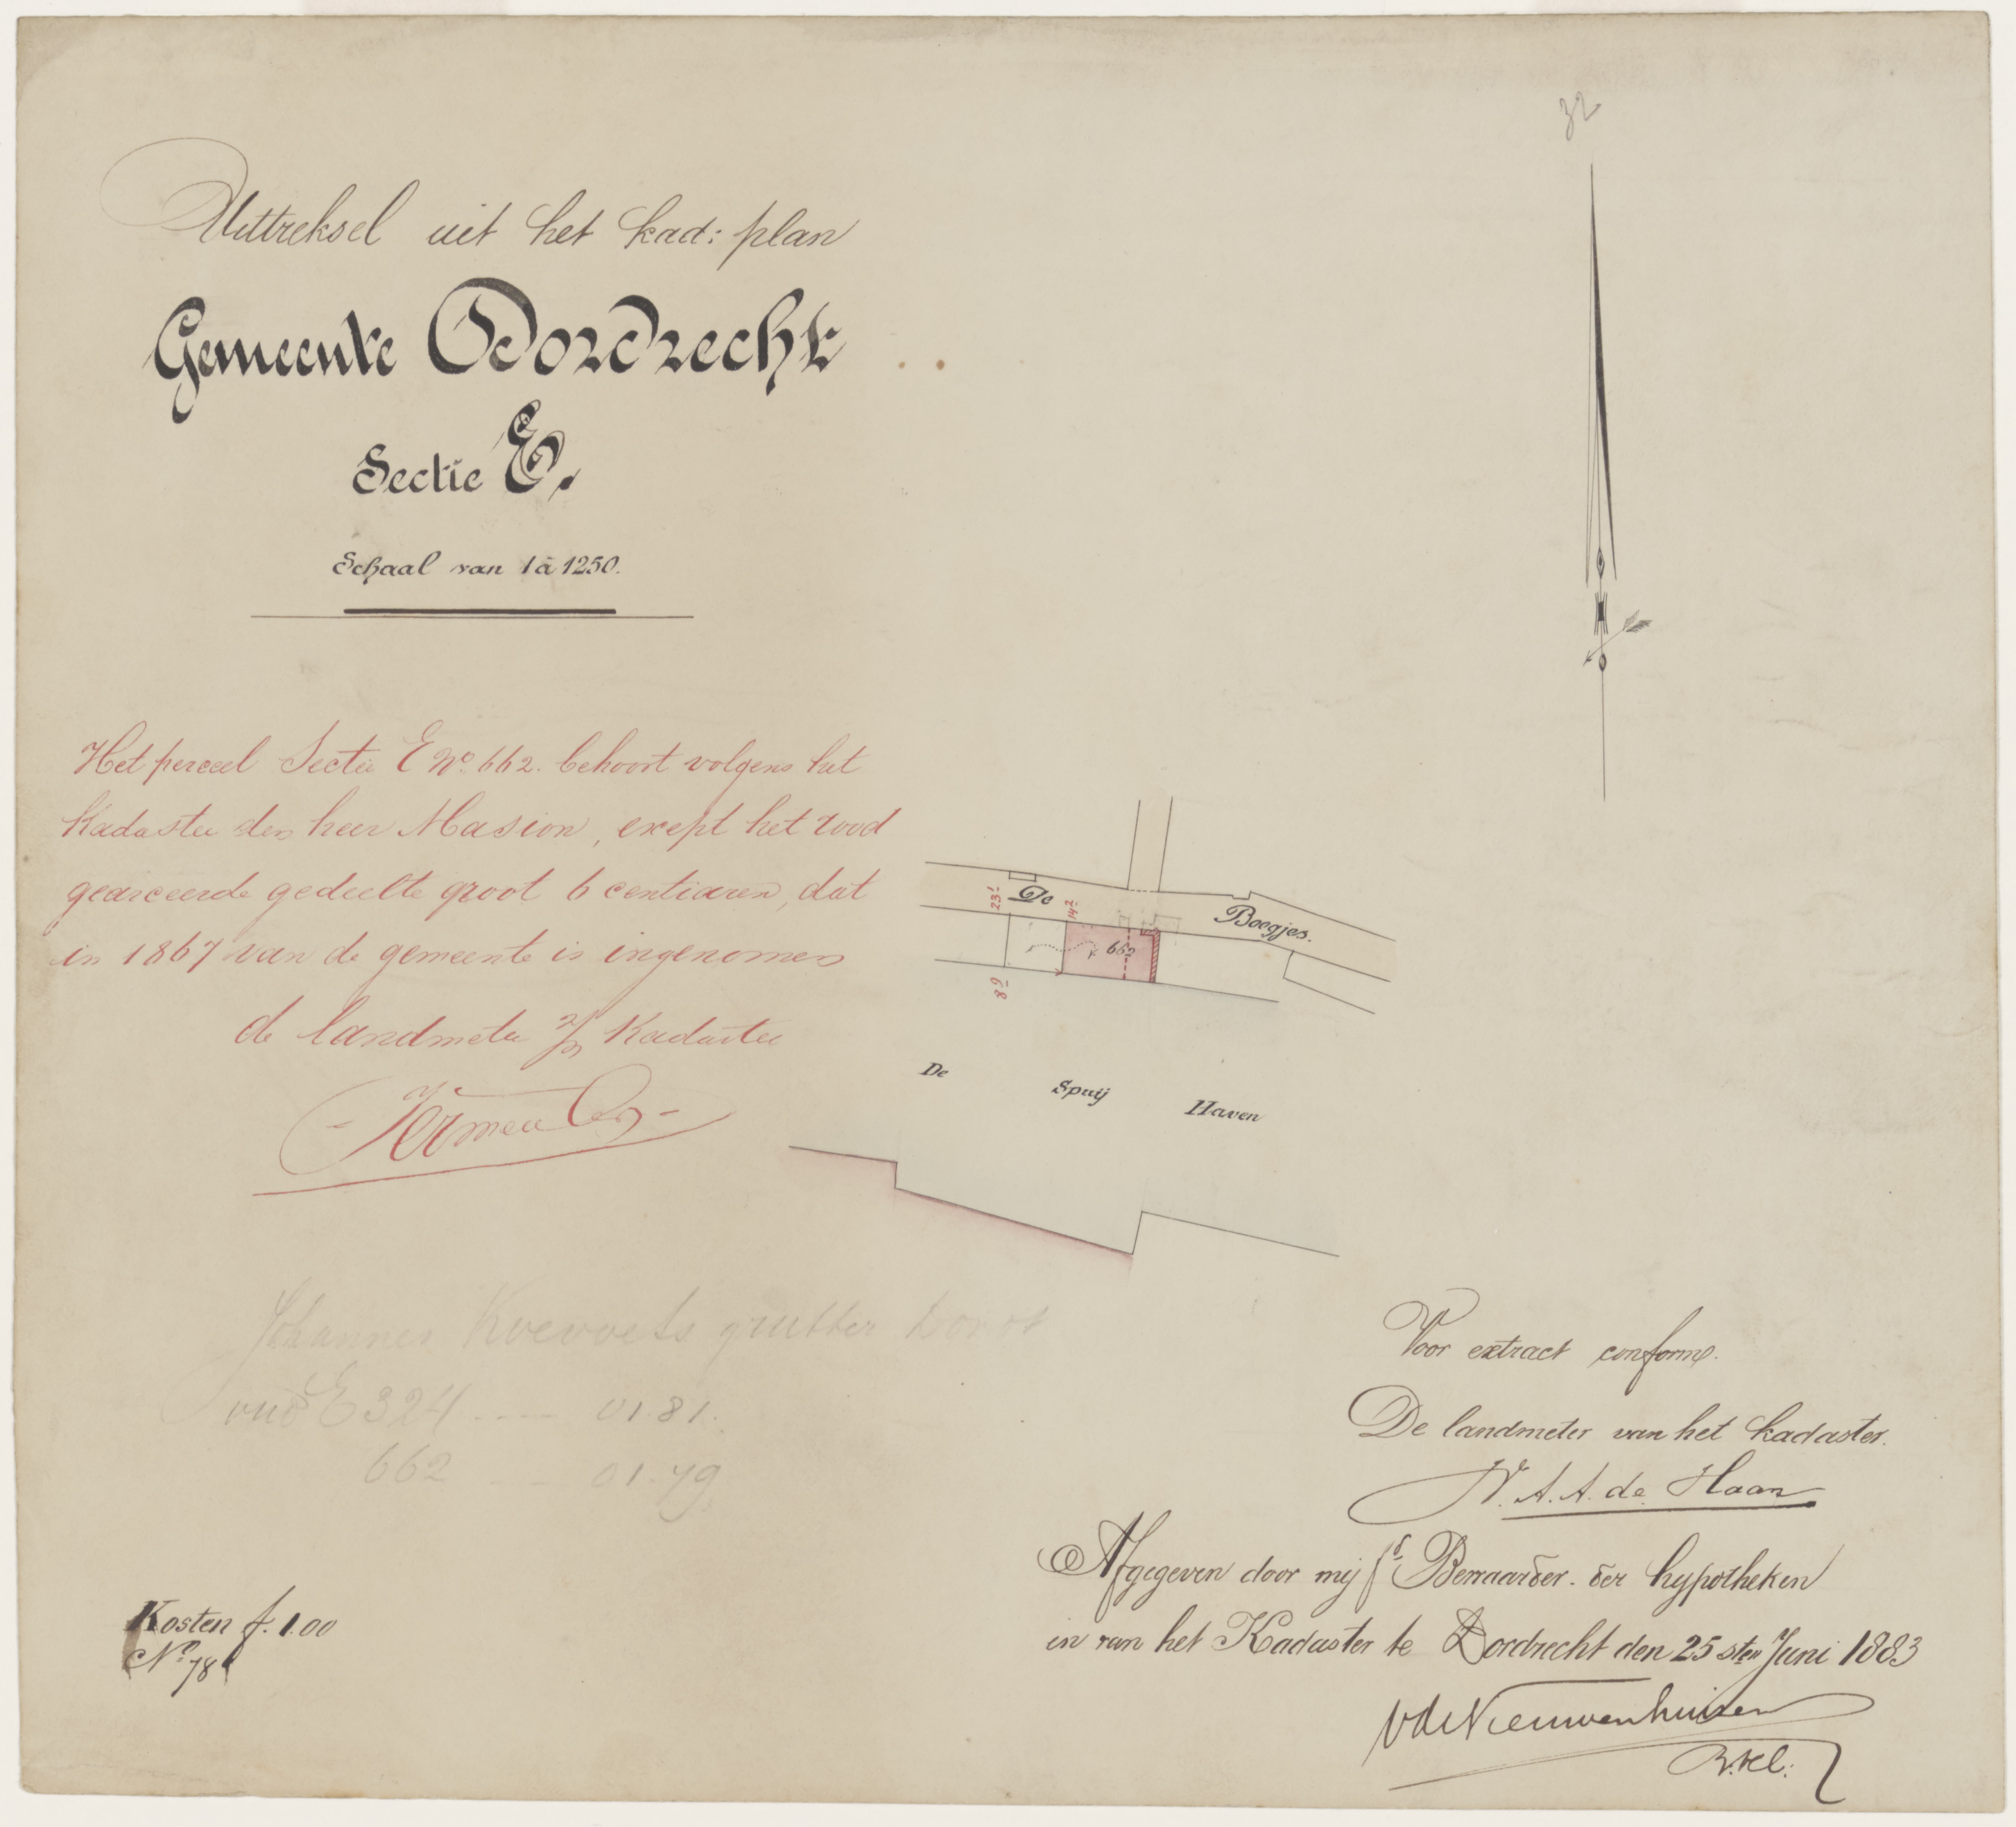 32
Uittreksel uit het kad: plan
Gemeente Dordrecht
Sectie E.
Schaal van 1 à 1250.
Het perceel Sectie E No. 662. behoort volgens het
Kadaster den heer Masion, exept het rood
gearceerde gedeelte groot 6 centiaren, dat
in 1867 van de gemeente is ingenomen
de landmeter Kadaster
De Boogjes.
23¹
14²
662
8⁹
De Spuij Haven
Johannes grutter
oud E 324 ---- 01.81.
662 --- 01.79
Voor extract conform.
De landmeter van het kadaster.
W. A. A. de Haan
Afgegeven door mij Bewaarder der hypotheken
en van het Kadaster te Dordrecht den 25sten Juni 1883
vdeNieuwenhuizen
Kosten f. 1.00
No. 78